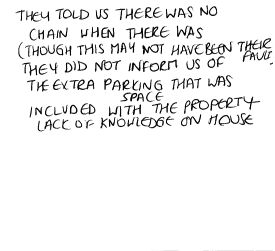 THEY TOLD US THERE WAS NO
CHAIN WHEN THERE WAS
(THOUGH THIS MAY NOT HAVE BEEN THEIR FAULT)
THEY DID NOT INFORM US OF
THE EXTRA PARKING SPACE THAT WAS
INCLUDED WITH THE PROPERTY
LACK OF KNOWLEDGE ON HOUSE